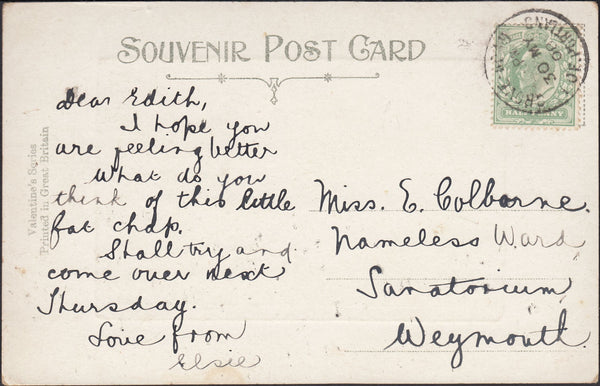 SOUVENIR POST CARD
Dear Edith,
I hope you
are feeling better
What do you
think of this little
fat chap.
Shall try and
come over next
Thursday.
Love from
Elsie
Miss. E. Colborne.
Nameless Ward
Sanatorium
Weymouth.
Valentine's Series
Printed in Great Britain
HALFPENNY